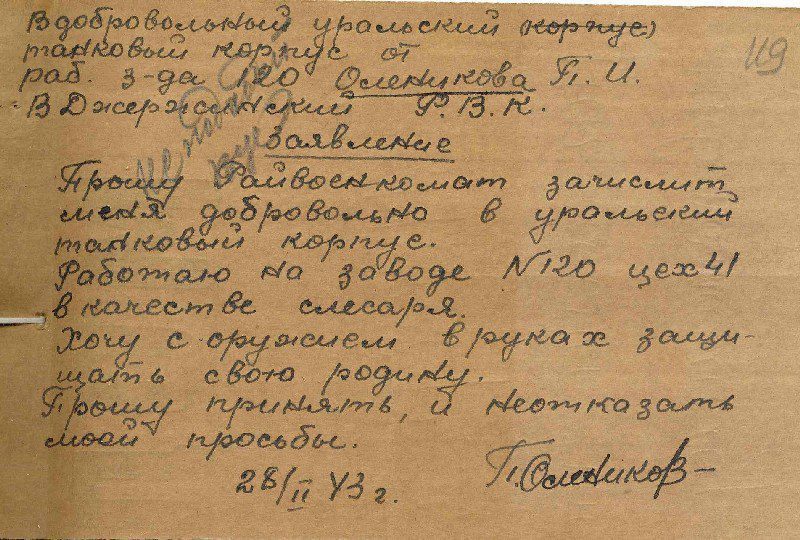 В добровольный уральский корпус)
танковый корпус от
раб. з-да 120 Оленикова П. И.
В Джержинский Р.В.К.
Заявление
Прошу Райвоенкомат зачислит
меня добровольно в уральский
танковый корпус.
Работаю на заводе N120 цех 41
в качестве слесаря.
Хочу с оружием в руках защи-
щать свою родину.
Прошу принять, и неотказать
моей просьбы.
28/II 43 г.
П. Олеников